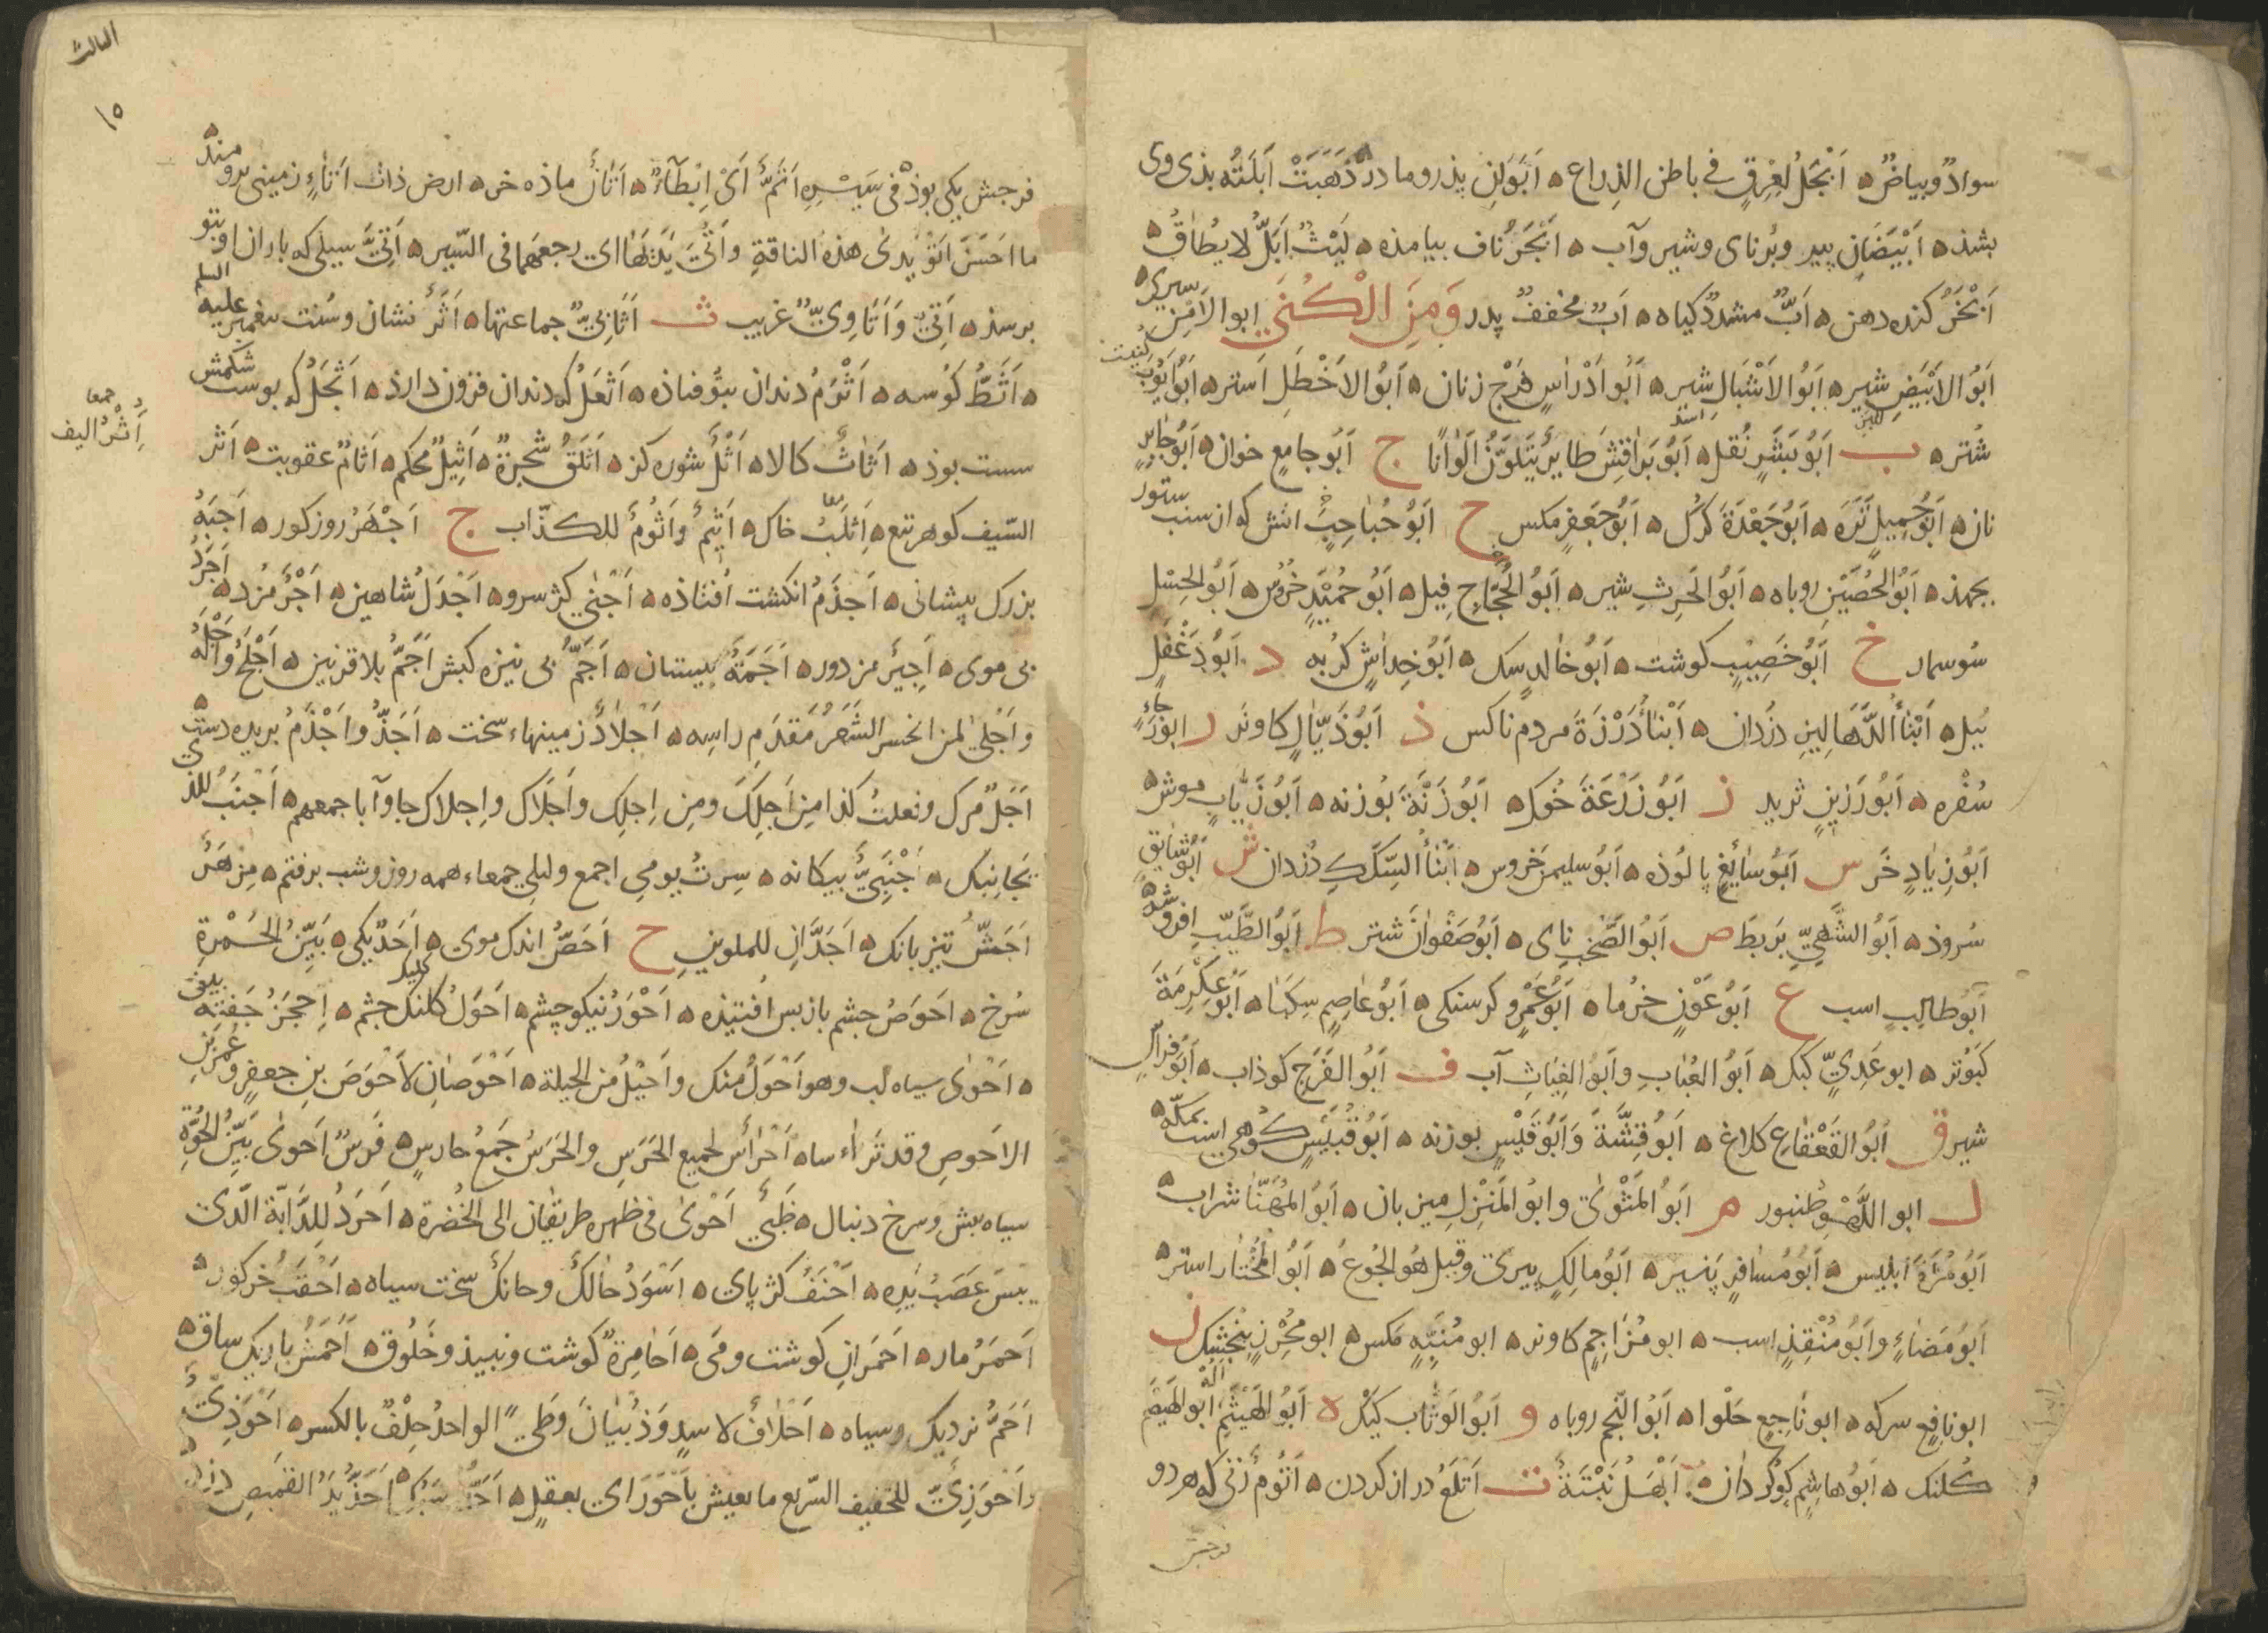 سوادٌ وبیاضٌ ه اَبْجَلُ لِعِرْقٍ فی باطن الذِراع ه اَبَوَانِ پذر و مادر ذَهَبَتْ اَبَلَتُه بذی وی
بشذ ه اَبْیَضَانِ پیر و بُرنای و شیر و آب ه اَبْجَرُ ناف بیامذه ه لَیْثٌ اَبَلُّ لا یُطاقُ ه
اَبْخَرُ کنده دهن ه اَبٌّ مشددٌ کیاه ه اَبٌ مخففٌ پدر وَمِنَ الْکُنَی ابو الاَمْنِ سیری ه
اَبُو الاَبْیَضِ شیر ه اَبُو الاَشْبَالِ شیر ه اَبُو اَدْرَاسٍ فَرْج زنان ه اَبُو الاَخْطَلِ اَستر ه اَبُو اَیُّوبَ
شُتر ه ب اَبُو بَشَرٍ نُقل ه اَبُو بَرَاقِشَ طایرٌ یَتَلَوَّنُ اَلْوَانًا ج اَبُو جامِعٍ خوان ه اَبُو جابِرٍ
نان ه اَبُو جُمِیلٍ تَرَه ه اَبُو جَعْدَةَ کرک ه اَبُو جَعْفَرٍ مکس ح اَبُو حُبَاحِبٍ اتش که از سنب ستور
بجهذ ه اَبُو الحُصَیْنِ روباه ه اَبُو الحَرِثِ شیر ه اَبُو الحَجَّاجِ فیل ه اَبُو حُمَیْدٍ خرس ه اَبُو الحِسْلِ
سُوسمار خ اَبُو خَصِیبٍ کوشت ه اَبُو خالدٍ سک ه اَبُو خِدَاشٍ کربه د اَبُو دَغْفَلٍ
پیل ه اَبْنَاءُ الدَّهَالِینِ دزدان ه اَبْنَاءُ دَرْزَةَ مردم ناکس ذ اَبُو ذَیَّالٍ کاو نر ر ابو رَجاءٍ
سُفْره ه اَبُو رَزِینٍ ثرید ز اَبُو زَرْعَةَ خوک ه اَبُو زَنَّةَ بوزنه ه اَبُو زَبَّابٍ موش ه
اَبُو زِیَادٍ خَر س اَبُو سَائِغٍ پالوذه ه اَبُو سلیمن خروس ه اَبْنَاءُ السِّکَکِ دُزدان ش اَبُو شَایِقٍ
سُروذ ه اَبُو الشَّهِیِّ بَربَط ص اَبُو الصَّخَبِ نای ه اَبُو صَفْوَانَ شتر ط اَبُو الطَّیِّبِ افروشه ه
اَبُو طالِبٍ اسب ع اَبُو عَوْنٍ خرما ه اَبُو عَمْرٍو کرسنکی ه اَبُو عاصِمٍ سِکبَا ه اَبُو عِکْرِمَةَ
کبَوتر ه ابو عَدِیٍّ کبک ه اَبُو العُبَابِ وَ اَبُو الغِیَاثِ آب ف اَبُو الفَرَجِ کوذاب ه اَبُو فِراسٍ
شیر ق اَبُو القَعْقَاعِ کلاغ ه اَبُو قِشَّةَ وَ اَبُو قَیْسٍ بوزنه ه اَبُو قُبَیْسٍ کوهی است بمکّه ه
ل ابو اللَّهْوِ طنبور م اَبُو المَثْوَی و ابو المَنْزِلِ میزبان ه اَبُو المُهَنَّا شراب ه
اَبُو مُرَّةَ ابلیس ه اَبُو مُسَافِرٍ پَنیر ه اَبُو مالِکٍ پیری وقیل هُوَ الجُوعُ ه اَبُو المُخْتَار استر ه
اَبُو مَضَاءٍ وَ اَبُو مُنْقِذٍ اسب ه ابو مُزَاحِمٍ کاو نر ه ابو مُنَبِّهٍ مکس ه ابو مُحْرِزٍ بنجشک ن
ابو نافِعٍ سرکه ه ابو ناجِعٍ حَلْوا ه اَبُو النَّجْمِ روباه و اَبُو الوَثَّابِ کیک ه اَبُو الهَیْثَمِ ابو الهَیْصَمِ
کلنک ه اَبُو هاشِمٍ کُوکَرْدان ه اَبْهَلُ نَبْتَةٌ ت اَتْلَعُ دراز کردن ه اَتُومٌ زنی که هر دو
فرجش
الثالث
١٥
فرجش یکی بوذ ه فی سَیْرِهِ اَتَمٌ اَیْ اِبْطَاءٌ ه اَتَانٌ ماذه خر ه ارض ذات اَتَاءٍ زمینی برومند ه
ما احَسَنَ اَتْوَ یَدَیْ هذه الناقةِ و اَتْیَ یَدَیْهَا ای رجعهما فی السّیر ه اَتِیٌّ سیلی که باران او بتو
برسذ ه اَتِیٌّ وَ اَتَاوِیٌّ غریب ث اَثَابِیُّ جماعتها ه اَثَرٌ نشان و سُنت پیغمبر علیه السلم
ه اَثَطُّ کَوسه ه اَثْرَمُ دندان بتو فتاذه ه اَثْعَلُ که دندان فزون دارد ه اَثْجَلُ که پوست شکمش
سست بوذ ه اَثَاثٌ کالا ه اَثْلٌ شوره کز ه اَثْلَقُ شَجَرَةٌ ه اَثِیلٌ محکم ه اَثامٌ عقوبت ه اَثر
اُثْرُ السیف جمعا
السّیف کوهر تیغ ه اِثلَبٌ خاک ه اَثِیمٌ وَ اَثُومٌ للکذّاب ج اَجْهَرُ روزکور ه اَجْبَهُ
بزرک پیشانی ه اَجذَمُ انکشت افتاذه ه اَجْنَی کژ سرو ه اَجْدَلُ شاهین ه اَجْرٌ مُزد ه اَجْرَدُ
بی موی ه اَجِیرٌ مزدور ه اَجَمَةٌ بیستان ه اَجَمُّ بی نیزه کبش اَجَمُّ بلا قرنین ه اَجْلَحُ وَ اَجْلَهُ
و اَجْلَی لمن انحسر الشَعَرُ مُقَدَمِ راسِه ه اَجْلَادٌ زمینهاء سخت ه اَجَذُّ و اَجْذَمُ بریده دست ه
اَجَلٌ مرک و فعلتُ کذا مِن اَجلِکَ ومِن اِجلِکَ و اَجلَاکَ و اِجلاک جاوآ باجمعهم ه اَجْنَبُ للذی
یُجَانِبُک ه اَجْنَبِیٌّ بیکانه ه سِرتُ یومی اجمع ولیلی جمعاء همه روز و شب برفتم ه مِزْهَرٌ
اَجَشُّ تیز بانک ه اَجَدَّانِ للملوینِ ح اَحَصُّ اندک موی ه اَحَدٌ یکی ه بَیِّنُ الحُمْرةِ
سُرخ ه احَوَصُ چشم باز پس افتیذه ه اَحْوَرُ نیکو چشم ه احَوَلُ کلنک چشم ه
ه احَوَی سیاه لب وهو اَحْوَلُ منک و اَحْیَلُ من الحیلة ه اَحْوَصَانِ لاَحْوَصَ بنِ جعفرٍ و عمرَ بنِ
الاَحوصِ و قد تَرَاءساه اَحْرَاسٌ لجمیع الحَرَسِ والحَرَسُ جَمعُ حارِسٍ ه فَرَسٌ اَحوَی بَیِّنُ الحُوَّةِ
سیاه بش و سرخ دنبال ه ظَبْیٌ اَحْوَی فی ظهره طریقتان الی الخُضرة ه اَحرَدُ لِلدَّابّة الّذی
یبس عَصَبُ یَدِه ه اَحْنَفُ کژ پای ه اَسْوَدُ حالِکٌ و حانِکٌ سخت سیاه ه اَحْقَبُ خرکور ه
اَحمَرُ مار ه اَحمَرانِ کوشت و می ه اَحَامِرَةٌ کوشت و نبیذ و خَلُوق ه اَحمَشُ باریک ساق ه
اَحَمُّ نزدیک و سیاه ه اَحْلَافٌ لاسدٍ وَذُبْیَانَ وَطَیٍّ الواحدُ حِلْفٌ بالکسر ه اَحوَذِیٌّ
و اَحْوَزِیٌّ للخفیف السّریع ما یعیش بِاَحْوَرَ ای بعقلٍ ه اَحَذُّ سَبُک ه اَحَذُّ یَدِ القَمیصِ